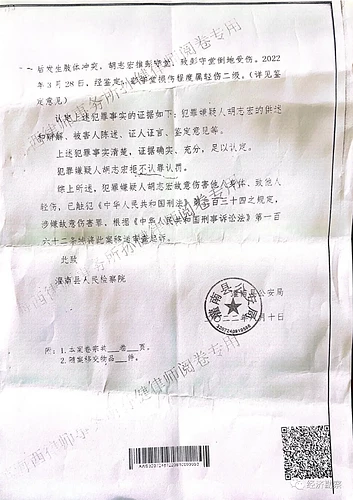 后发生肢体冲突，胡志宏推彭守堂，致彭守堂倒地受伤。2022
年3月28日，经鉴定，彭守堂损伤程度属轻伤二级。（详见鉴
定意见）
认定上述犯罪事实的证据如下：犯罪嫌疑人胡志宏的供述
和辩解、被害人陈述、证人证言、鉴定意见等。
上述犯罪事实清楚，证据确实、充分，足以认定。
犯罪嫌疑人胡志宏拒不认罪认罚。
综上所述，犯罪嫌疑人胡志宏故意伤害他人身体，致他人
轻伤，已触犯《中华人民共和国刑法》第二百三十四之规定，
涉嫌故意伤害罪，根据《中华人民共和国刑事诉讼法》第一百
六十二条 将此案移送审查起诉。
此致
灌南县人民检察院
灌南县公安局
二二年 月十日
附：1.本案卷宗共 卷 页。
2.随案移交物品 件。
灌南县公安局
律师阅卷专用
经济观察